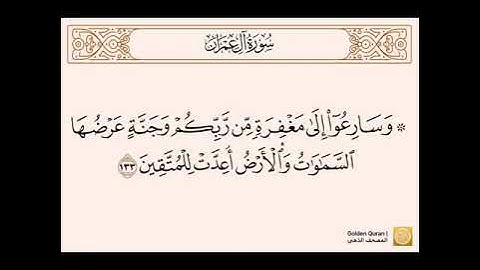 سُورَةُ آلِ عِمْرَان
۞ وَسَارِعُوٓا۟ إِلَىٰ مَغْفِرَةٍ مِّن رَّبِّكُمْ وَجَنَّةٍ عَرْضُهَا
ٱلسَّمَٰوَٰتُ وَٱلْأَرْضُ أُعِدَّتْ لِلْمُتَّقِينَ ١٣٣
Golden Quran |
المصحف الذهبي